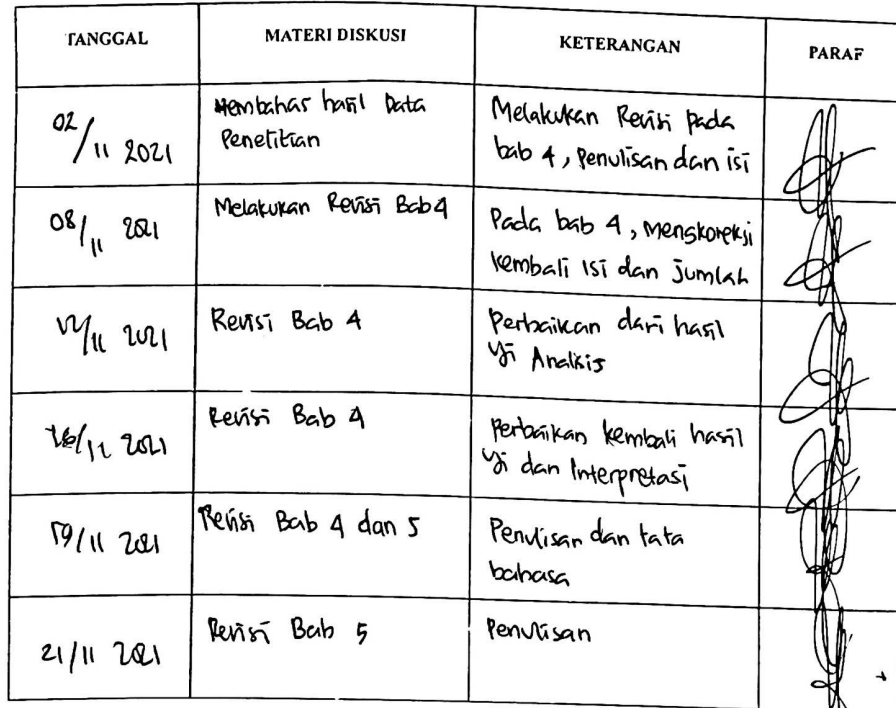 TANGGAL MATERI DISKUSI KETERANGAN PARAF
02/11 2021
Membahas hasil Data
Penelitian
Melakukan Revisi pada
bab 4, Penulisan dan isi
08/11 2021
Melakukan Revisi Bab 4
Pada bab 4, Mengkoreksi
kembali isi dan jumlah
12/11 2021
Revisi Bab 4
Perbaikan dari hasil
Uji Analisis
16/11 2021
Revisi Bab 4
Perbaikan kembali hasil
Uji dan Interpretasi
19/11 2021
Revisi Bab 4 dan 5
Penulisan dan tata
bahasa
21/11 2021
Revisi Bab 5
Penulisan